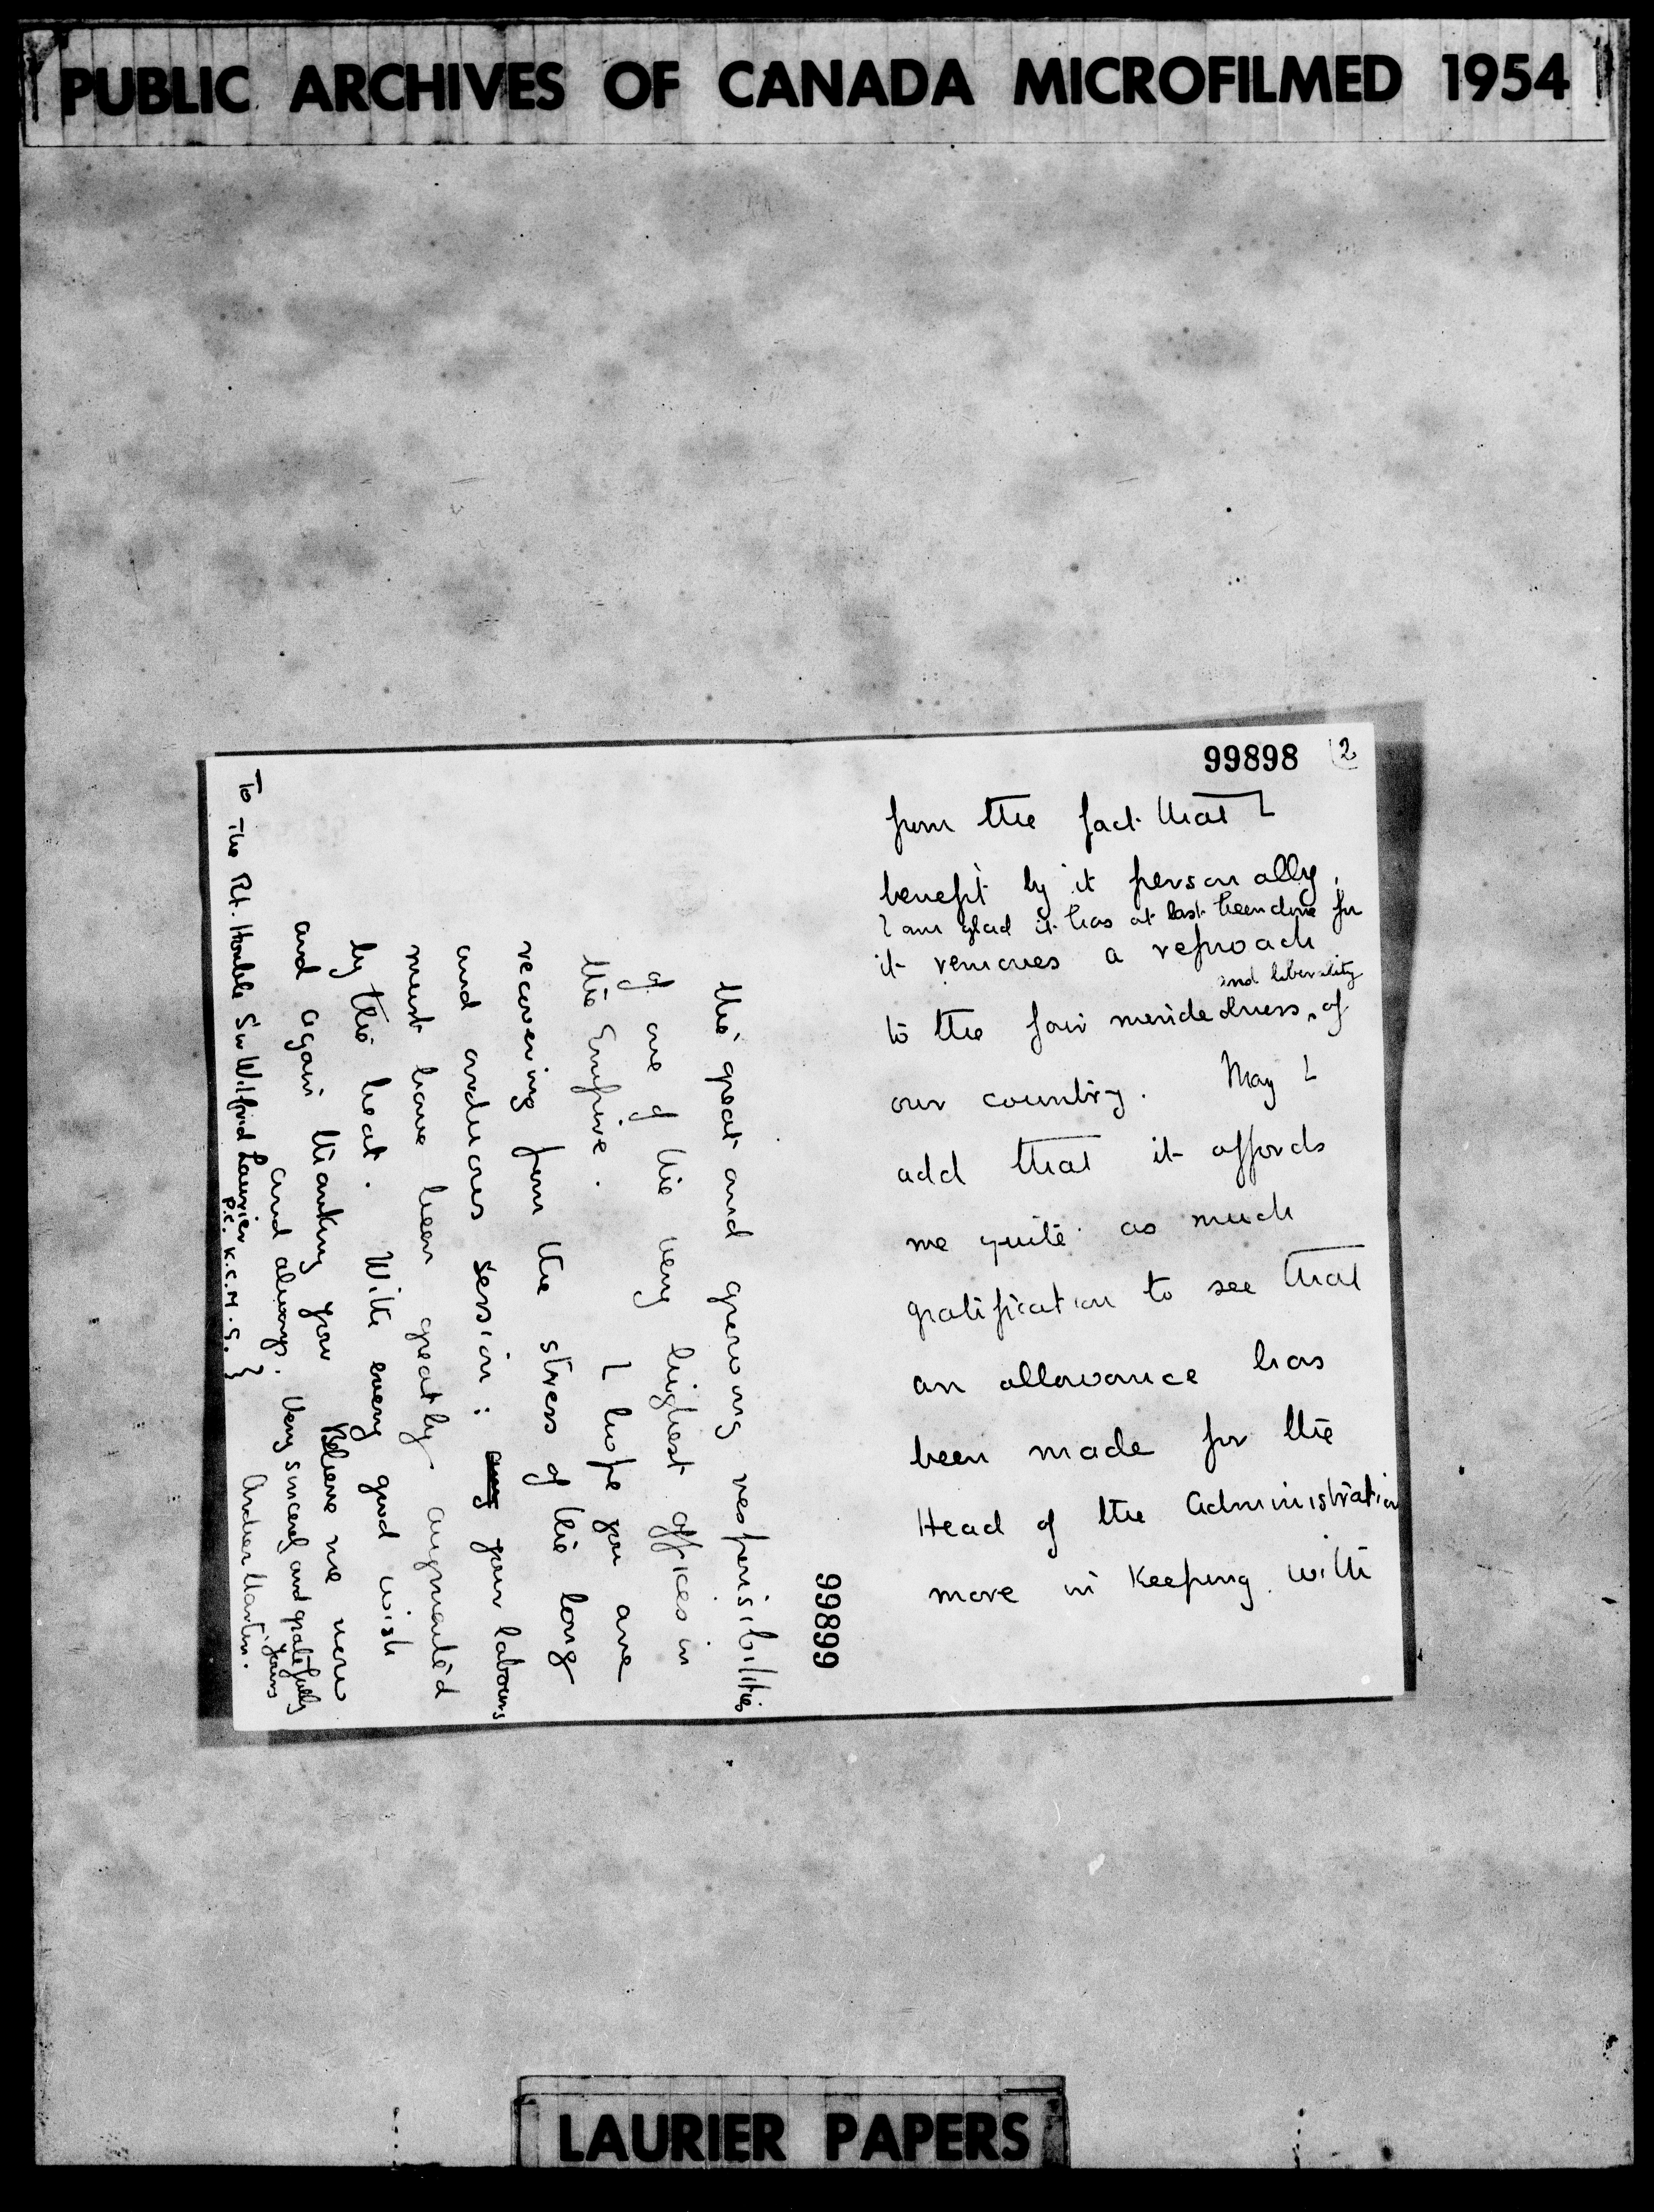 PUBLIC ARCHIVES OF CANADA MICROFILMED 1954
99898 (2
from the fact that I
benefit by it personally.
I am glad it has at last been done for
it removes a reproach
and liberality
to the fair mindedness of
our country. May I
add that it affords
me quite as much
gratification to see that
an allowance has
been made for the
Head of the Administration
more in keeping with
99899
the great and growing responsibilities
of one of the very highest offices in
the Empire. I hope you are
recovering from the stress of the long
and arduous session: your labours
must have been greatly augmented
by the heat. With every good wish
and again thanking you Believe me now
and always. Very sincerely and gratefully
yours
Archer Martin.
To The Rt. Honble Sir Wilfrid Laurier
P.C. K.C.M.G. }
LAURIER PAPERS